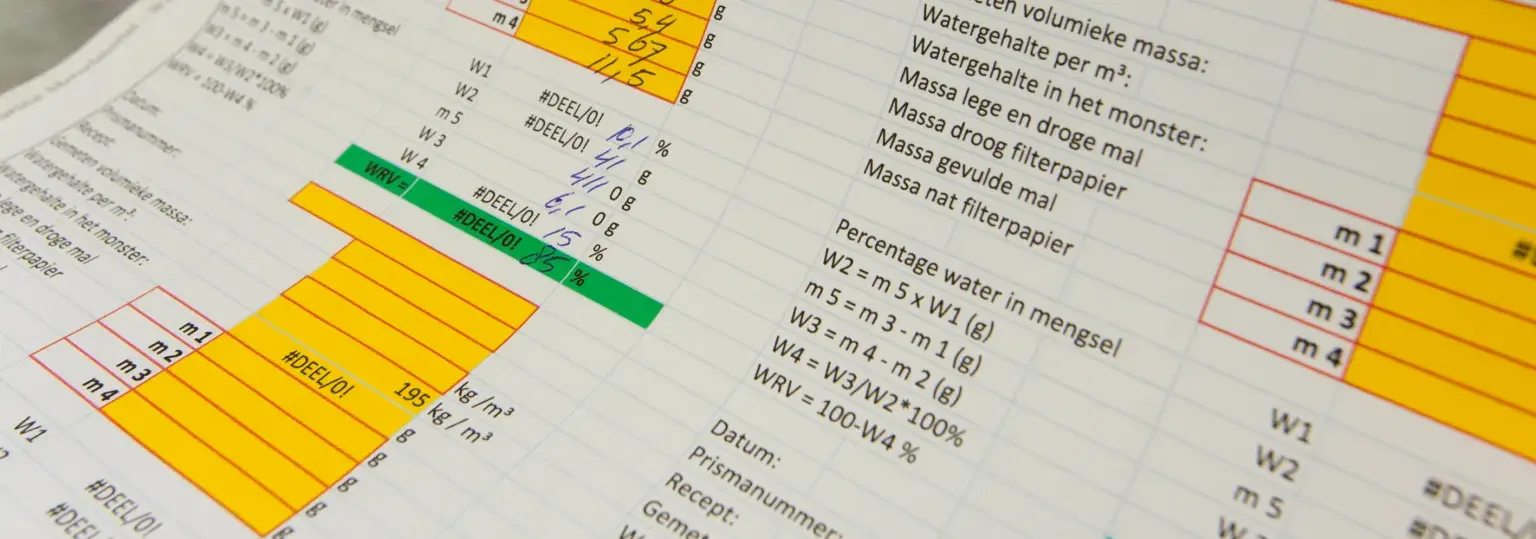 m 5 x W1 (g)
m 5 = m 3 - m 1 (g)
W3 = m 4 - m 2 (g)
W4 = W3/W2*100%
WRV = 100-W4 %
Datum:
Prismanummer:
Recept:
Gemeten volumieke massa:
Watergehalte per m³:
Watergehalte in het monster:
lege en droge mal
filterpapier
mengsel
5,4 g
m 4 567 g
11,5 g
W1 #DEEL/0! 10,1 %
W2 #DEEL/0! 41 g
m 5 411 0 g
W 3 6,1 0 g
W 4 #DEEL/0! 15 %
WRV = #DEEL/0! 85 %
195 kg/m³
#DEEL/0! kg/m³
m 1 g
m 2 g
m 3 g
m 4 g
W1 #DEEL/0!
#DEEL/0!
volumieke massa:
Watergehalte per m³:
Watergehalte in het monster:
Massa lege en droge mal
Massa droog filterpapier
Massa gevulde mal
Massa nat filterpapier
Percentage water in mengsel
W2 = m 5 x W1 (g)
m 5 = m 3 - m 1 (g)
W3 = m 4 - m 2 (g)
W4 = W3/W2*100%
WRV = 100-W4 %
Datum:
Prismanummer:
Recept:
m 1
m 2
m 3
m 4
W1
W2
m 5